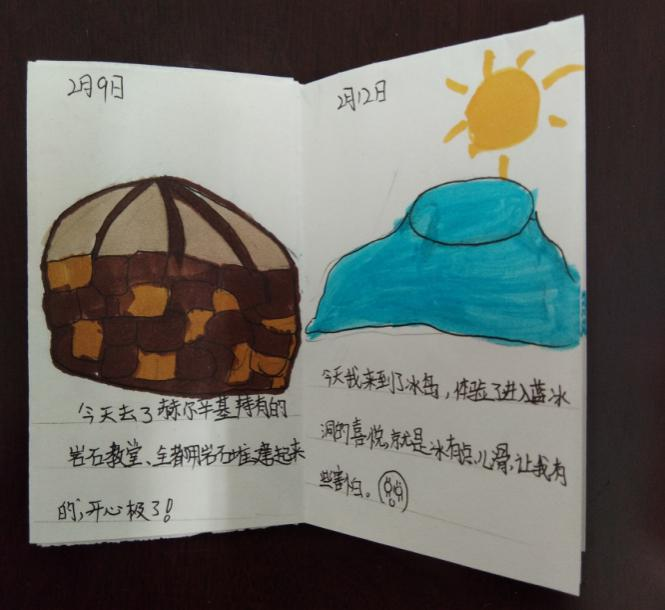 2月9日
今天去了赫尔辛基特有的
岩石教堂、全都用岩石堆起来
的,开心极了!
2月12日
今天我来到了冰岛,体验了进入蓝冰
洞的喜悦,就是冰有点儿滑,让我有
些害怕。